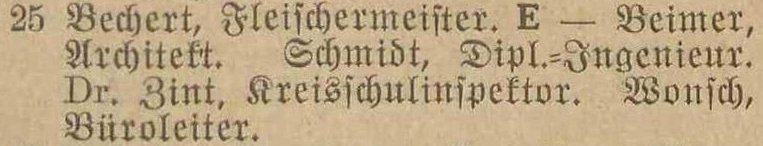 25 Bechert, Fleischermeister. E — Beimer,
Architekt. Schmidt, Dipl.-Ingenieur.
Dr. Zint, Kreisschulinspektor. Wonsch,
Büroleiter.